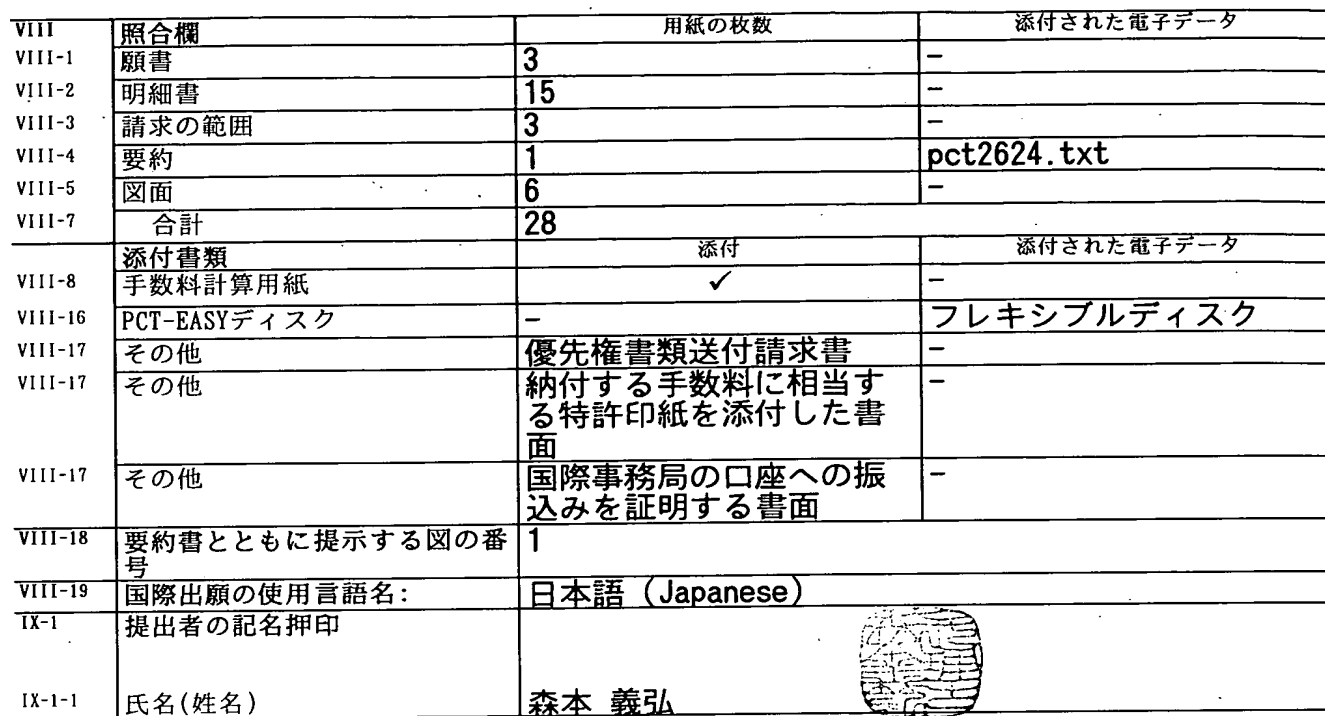 VIII 照合欄 用紙の枚数 添付された電子データ
VIII-1 願書 3 -
VIII-2 明細書 15 -
VIII-3 請求の範囲 3 -
VIII-4 要約 1 pct2624.txt
VIII-5 図面 6 -
VIII-7 合計 28
添付書類 添付 添付された電子データ
VIII-8 手数料計算用紙 ✓ -
VIII-16 PCT-EASYディスク - フレキシブルディスク
VIII-17 その他 優先権書類送付請求書 -
VIII-17 その他 納付する手数料に相当す -
る特許印紙を添付した書
面
VIII-17 その他 国際事務局の口座への振 -
込みを証明する書面
VIII-18 要約書とともに提示する図の番 1
号
VIII-19 国際出願の使用言語名: 日本語 (Japanese)
IX-1 提出者の記名押印
IX-1-1 氏名(姓名) 森本 義弘